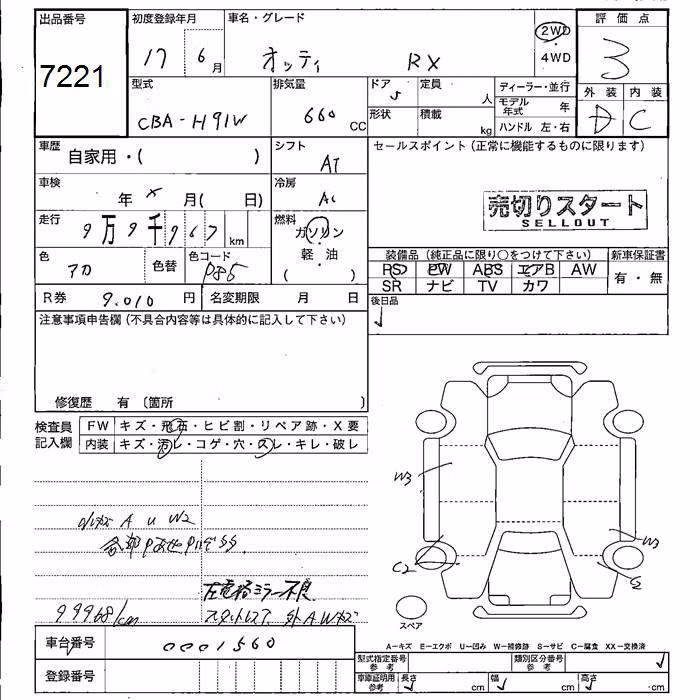 出品番号 初度登録年月 車名・グレード 評価点
7221 17 6月 オッティ RX 2WD・4WD 3
型式 排気量 ドア 定員 ディーラー・並行 外装 内装
CBA-H91W 660 CC 5 人 モデル年式 年 D C
形状 積載 kg ハンドル 左・右
車歴 自家用・( ) シフト AT セールスポイント (正常に機能するものに限ります)
車検 年 月( 日) 冷房 AC
売切りスタート
SELLOUT
走行 9万9千967 km 燃料 ガソリン
軽・油
( )
色 アカ 色替 色コード
装備品 (純正品に限り○をつけて下さい) 新車保証書
PS PW ABS エアB AW 有・無
SR ナビ TV カワ
R券 9.010 円 名変期限 月 日 後日品
注意事項申告欄 (不具合内容等は具体的に記入して下さい)
修復歴 有 〔箇所 〕
検査員記入欄 FW キズ・飛石・ヒビ割・リペア跡・X要
内装 キズ・汚レ・コゲ・穴・スレ・キレ・破レ
W3
A U W2
W3
C2
左電格ミラー不良
99968/km
スペア
A−キズ E−エクボ U−凹み W−補修跡 S−サビ C−腐食 XX−交換済
車台番号 0001560
型式指定番号 参考 類別区分番号 参考
登録番号 車庫証明用 参考 長さ cm 幅 cm 高さ cm